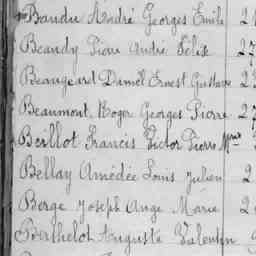 Bandu André Georges Emile 2
Beaudy Pierre André Félix 27
Beaugeard Daniel Ernest Gustave 2
Beaumont Roger Georges Pierre 27
Beillot Francis Victor Pierre
Bellay Amédée Louis Julien 2
Berge Joseph Ange Marie 2
Berthelot Auguste Valentin